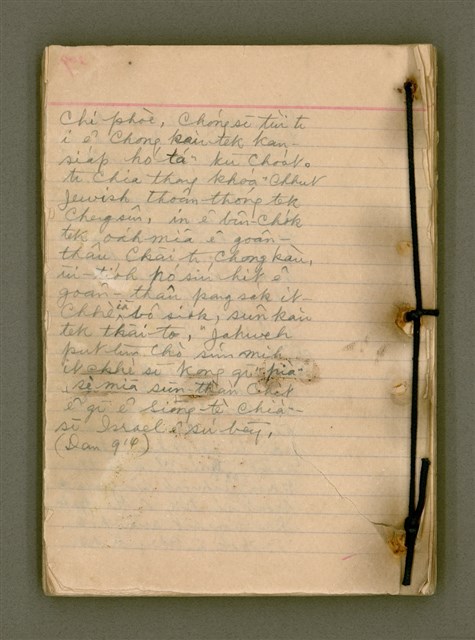 Chi phòe, Chóng sī tùi tī
i ê Chong kàu tek kan-
siáp hō táⁿ ku Choát.
tī Chia thang khòaⁿ Chhut
Jewish thoân-thóng tek
Cheng sîn, in ê bîn-Chók
tek oáh miā ê goân-
thâu Chāi tī Chong kàu,
ûi-tióh pó siú hit ê
goân-thâu pang sak it-
Chhè, bô sioh, sûn kàu
tek thāi-tō, "Jahweh
put lūn chò sím mih
it chhè sī kong gī"
sè miā sûn-thàn Chit
ê gī ê Siōng-tè Chiàⁿ-
sī Israel ê sù bēng.
(Dan 9:14)